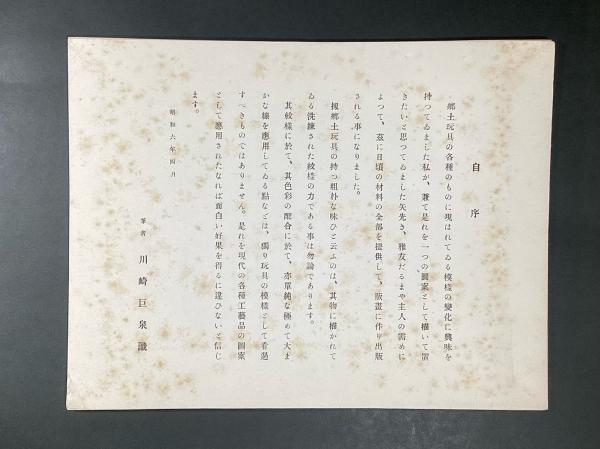 自序
郷土玩具の各種のものに現はれてゐる模様の變化に興味を
持つてゐました私が、兼て是れを一つの圖案として描いて置
きたいと思つてゐました矢先き、雅友だるまや主人の需めに
よつて、茲に日頃の材料の全部を提供して、版畫に作り出版
される事になりました。
抑郷土玩具の持つ粗朴な味ひと云ふのは、其物に描かれて
ゐる洗練された紋様の力である事は勿論であります。
其紋様に於て、其色彩の配合に於て、亦單純な極めて大ま
かな線を應用してゐる點などは、獨り玩具の模様として看過
すべきものではありません。是れを現代の各種工藝品の圖案
として應用されたなれば面白い好果を得るに違ひないと信じ
ます。
昭和六年四月
筆者 川崎巨泉識